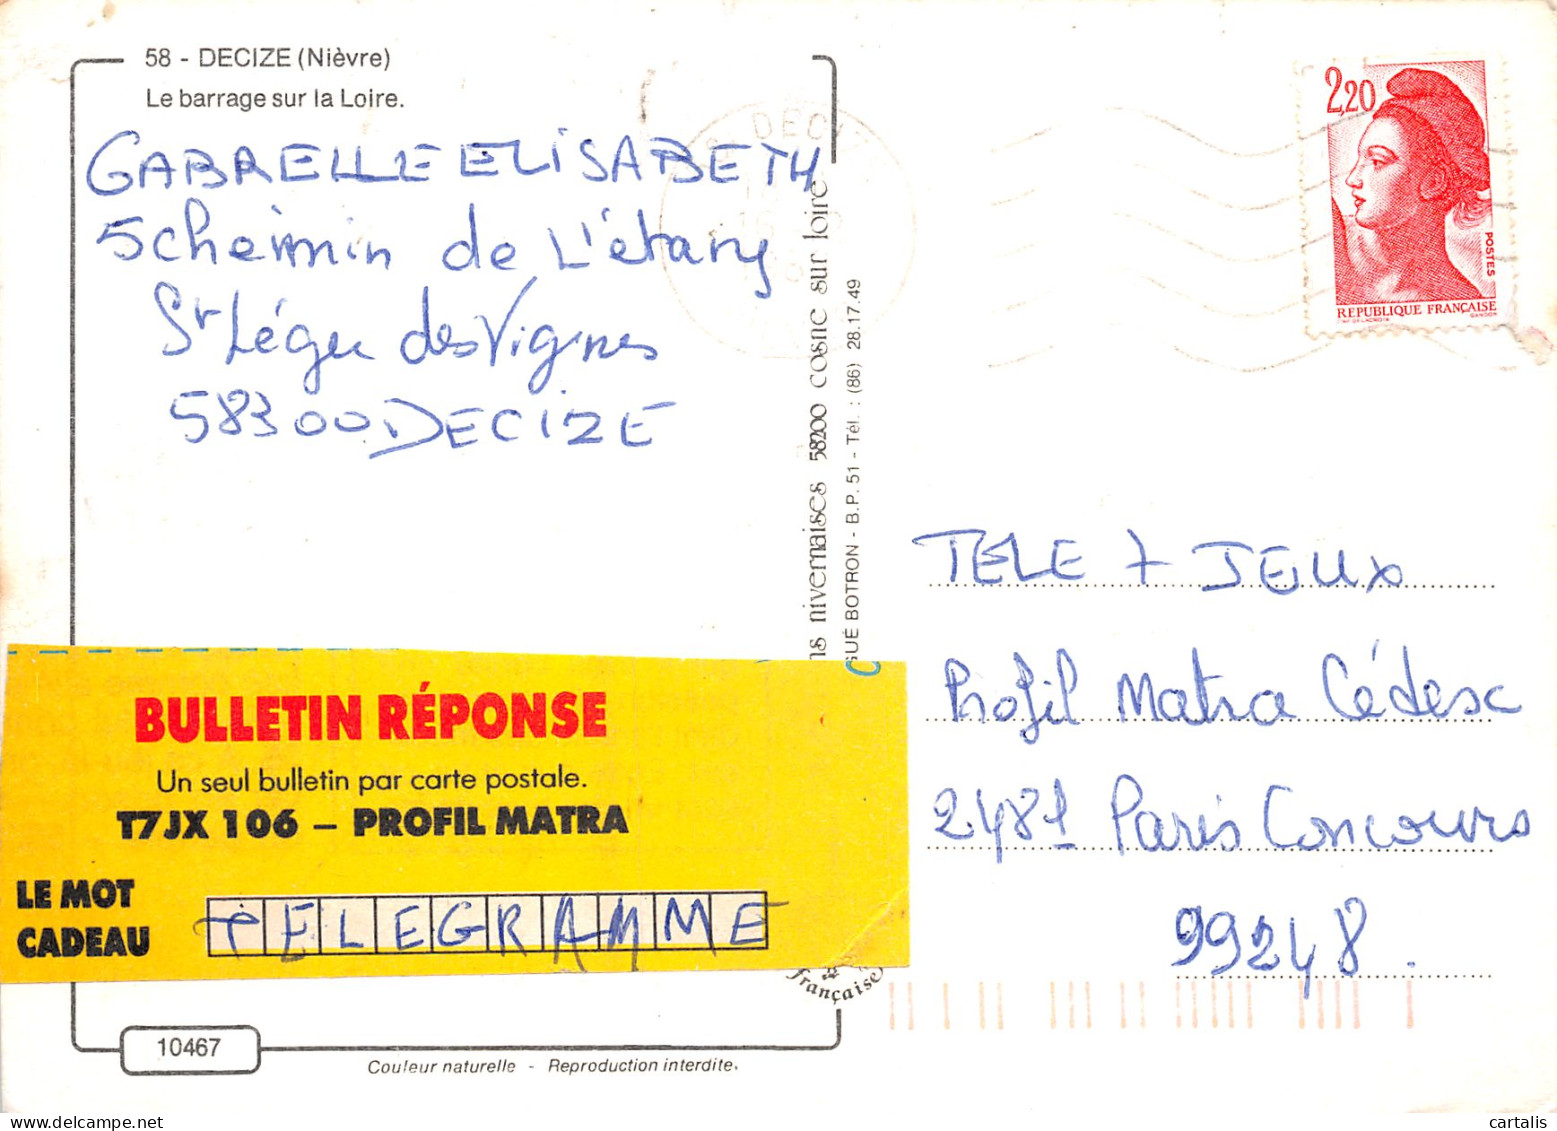 58 - DECIZE (Nièvre)
Le barrage sur la Loire.
GABRELLE ELISABETH
5 chemin de L'étang
St Léger des Vignes
58300 DECIZE
DECI
2,20
POSTES
REPUBLIQUE FRANÇAISE
GANDON
ns nivernaises 58200 cosne sur loire
GUE BOTRON - B.P. 51 - Tél. : (86) 28.17.49
TELE 7 JEUX
Profil Matra Cédesc
2481 Paris Concours
99248.
BULLETIN RÉPONSE
Un seul bulletin par carte postale.
T7JX 106 – PROFIL MATRA
LE MOT
CADEAU
TELEGRAMME
française
10467
Couleur naturelle - Reproduction interdite.
cartalis